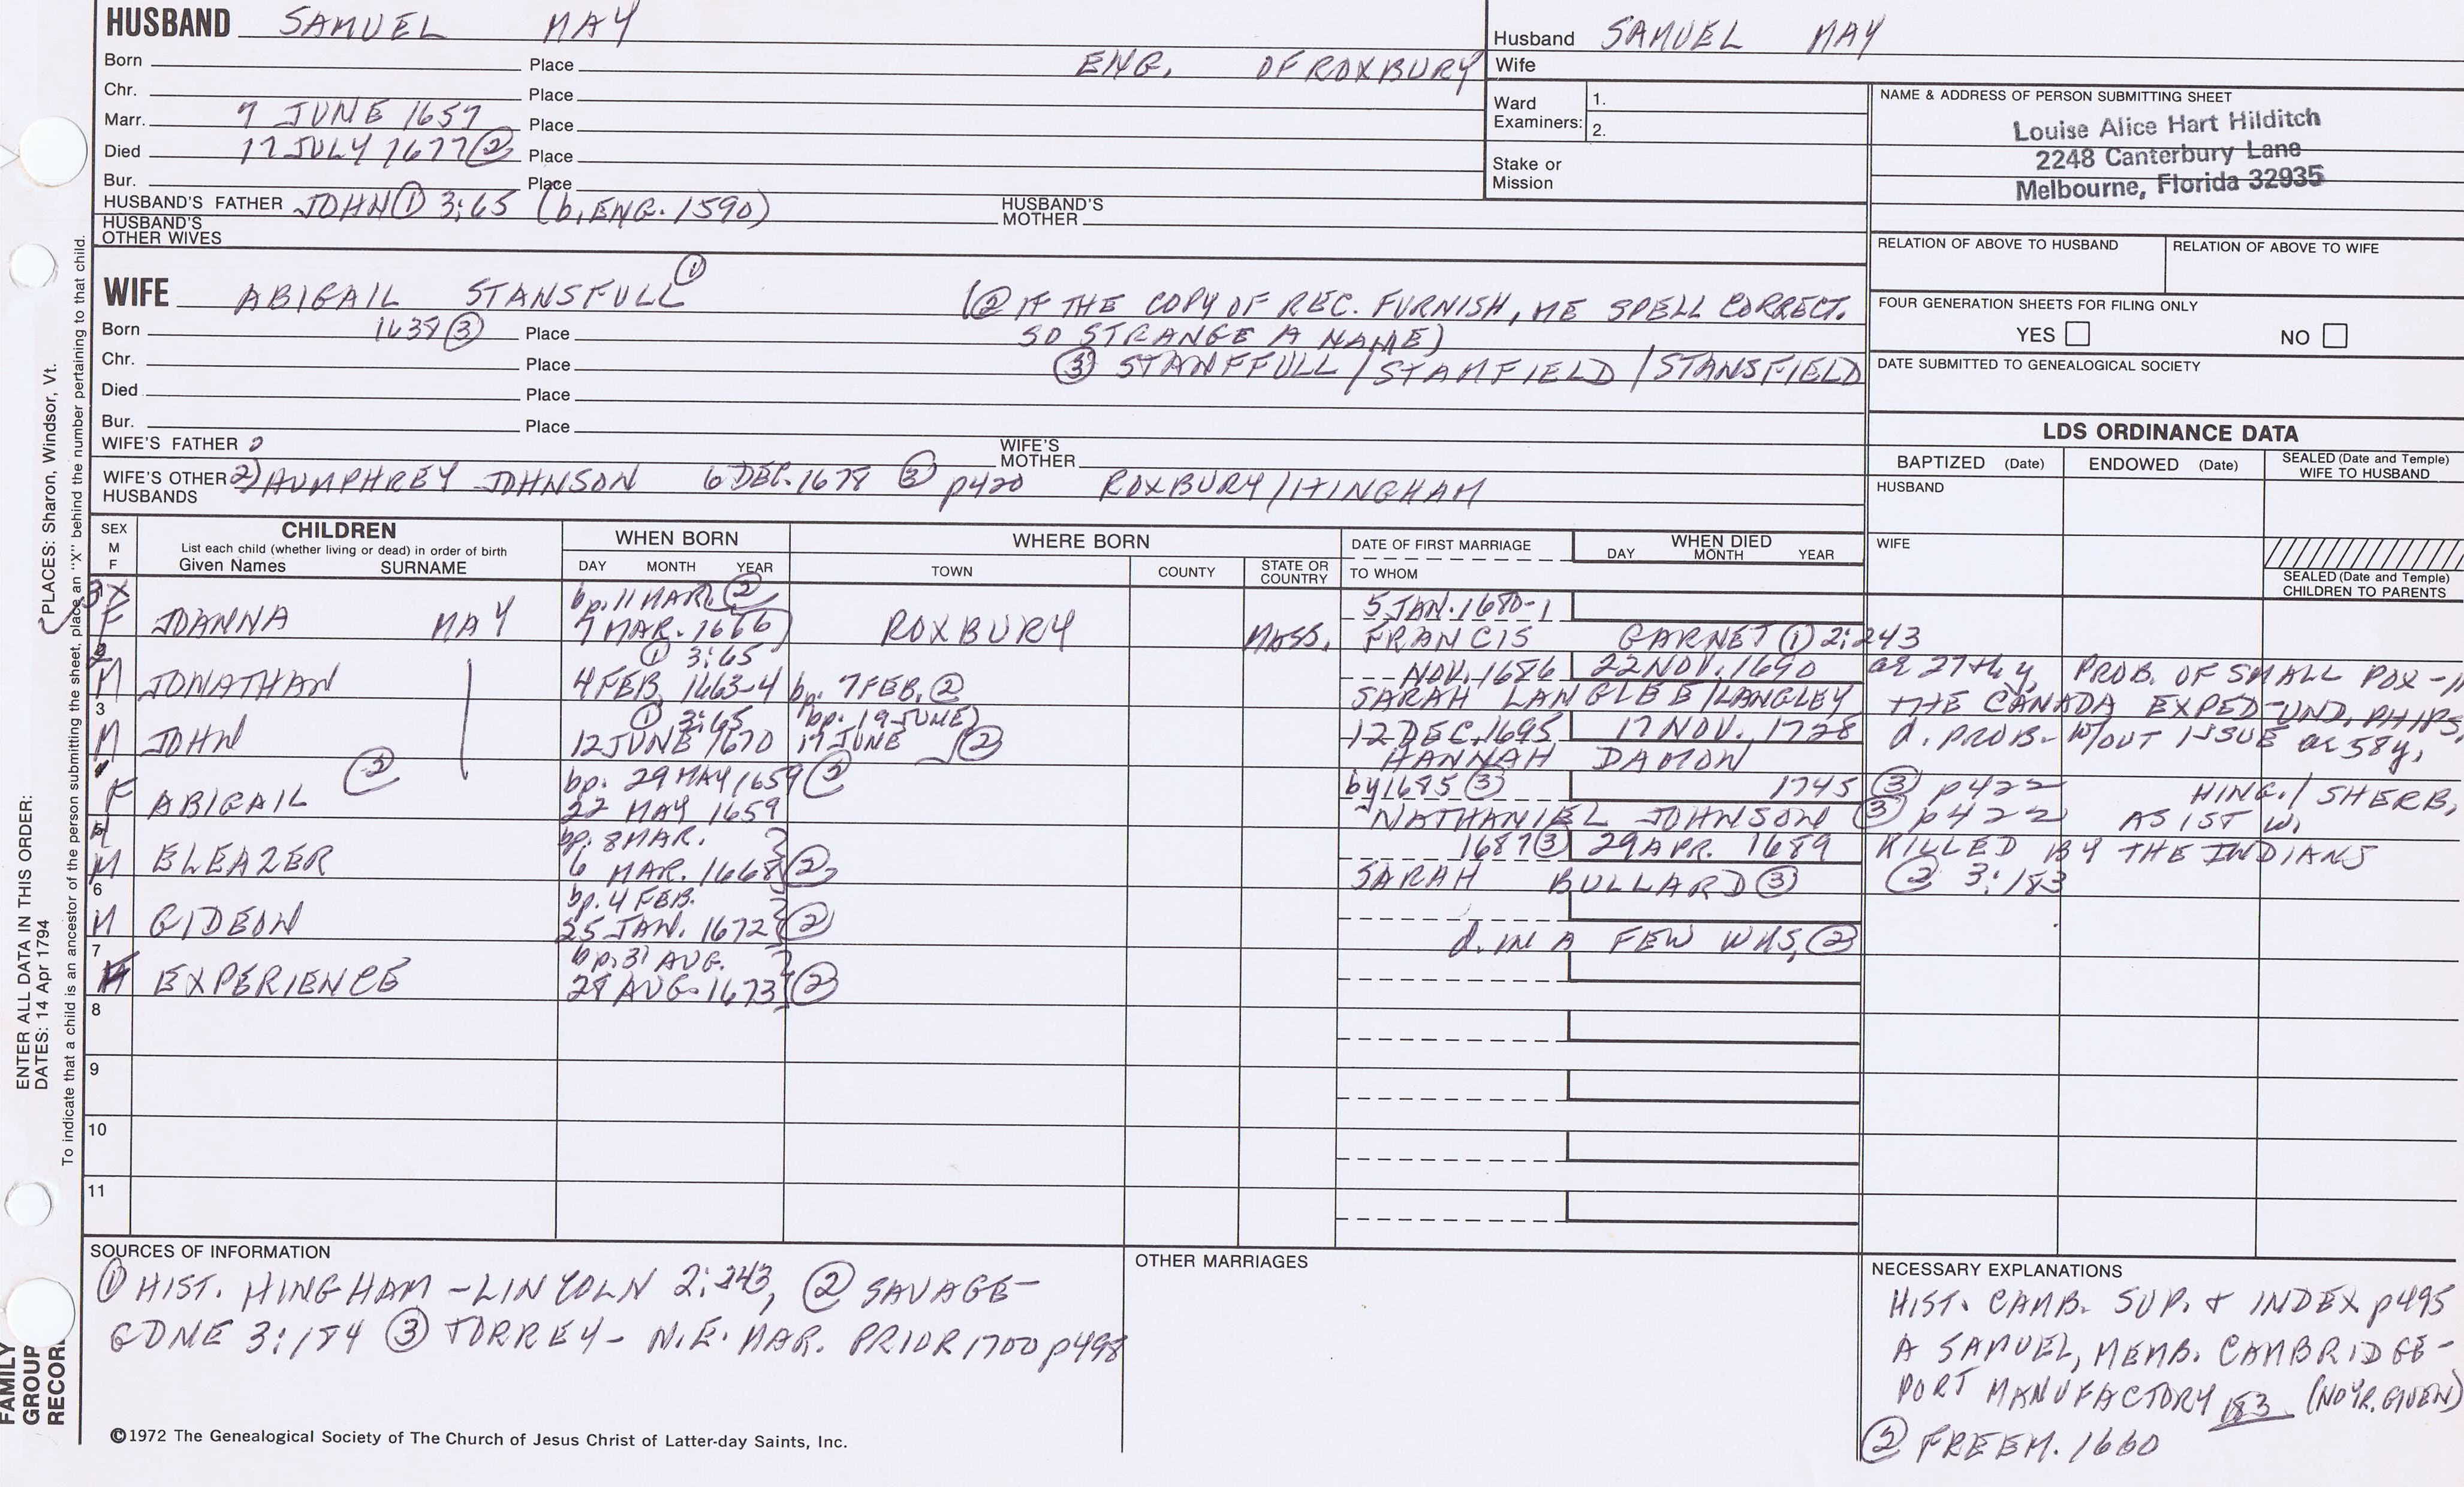 HUSBAND SAMUEL MAY
Born Place ENG. OF ROXBURY
Chr. Place
Marr. 7 JUNE 1657 Place
Died 17 JULY 1677 ② Place
Bur. Place
HUSBAND'S FATHER JOHN ① 3:65 (b. ENG. 1590) HUSBAND'S MOTHER
HUSBAND'S OTHER WIVES
Husband SAMUEL MAY
Wife
Ward Examiners: 1.
2.
Stake or Mission
NAME & ADDRESS OF PERSON SUBMITTING SHEET
Louise Alice Hart Hilditch
2248 Canterbury Lane
Melbourne, Florida 32935
RELATION OF ABOVE TO HUSBAND RELATION OF ABOVE TO WIFE
FOUR GENERATION SHEETS FOR FILING ONLY
YES NO
DATE SUBMITTED TO GENEALOGICAL SOCIETY
WIFE ABIGAIL STANSFULL ①
(② IF THE COPY OF REC. FURNISH, ME SPELL CORRECT.
SO STRANGE A NAME)
Born 1638 ③ Place
③ STANFFULL / STAMFIELD / STANSFIELD
Chr. Place
Died Place
Bur. Place
WIFE'S FATHER WIFE'S MOTHER
WIFE'S OTHER HUSBANDS 2) HUMPHREY JOHNSON 6 DEC. 1678 ③ p420 ROXBURY/HINGHAM
LDS ORDINANCE DATA
BAPTIZED (Date) ENDOWED (Date) SEALED (Date and Temple) WIFE TO HUSBAND
HUSBAND
WIFE
SEALED (Date and Temple) CHILDREN TO PARENTS
SEX M F
CHILDREN
List each child (whether living or dead) in order of birth
Given Names SURNAME
WHEN BORN
DAY MONTH YEAR
WHERE BORN
TOWN COUNTY STATE OR COUNTRY
DATE OF FIRST MARRIAGE
TO WHOM
WHEN DIED
DAY MONTH YEAR
3 X bp. 11 MAR. ② 5 JAN. 1680-1
F JOANNA MAY 7 MAR. 1666 ROXBURY MASS. FRANCIS GARNET ① 2:243
2 ① 3:65 NOV. 1686 22 NOV. 1690 ae 27th y, PROB. OF SMALL POX -
M JONATHAN 4 FEB 1663-4 bp. 7 FEB. ② SARAH LANGLEE/LANGLEY THE CANADA EXPED-UND. PHIPS,
3 ① 3:65 bp. 19 JUNE) 12 DEC. 1695 17 NOV. 1728 d. PROB. W/OUT ISSUE ae 58y,
M JOHN 12 JUNE 1670 17 JUNE ② HANNAH DAMON
② bp. 29 MAY 1659 ② by 1685 ③ 1745 ③ p422 HING./ SHERB,
F ABIGAIL 22 MAY 1659 NATHANIEL JOHNSON ③ p422 AS 1ST W.
bp. 8 MAR. 1687 ③ 29 APR. 1689 KILLED BY THE INDIANS
M ELEAZER 6 MAR. 1668 ② SARAH BULLARD ③ ② 3:183
6 bp. 4 FEB.
M GIDEON 25 JAN. 1672 ② d. IN A FEW WKS, ②
7 bp. 31 AUG.
EXPERIENCE 28 AUG. 1673 ②
8
9
10
11
SOURCES OF INFORMATION
① HIST. HINGHAM - LINCOLN 2:243, ② SAVAGE-
GDNE 3:184 ③ TORREY - N.E. MAR. PRIOR 1700 p498
OTHER MARRIAGES
NECESSARY EXPLANATIONS
HIST. CAMB. SUP. & INDEX p495
A SAMUEL, MEMB. CAMBRIDGE-
PORT MANUFACTORY 183 (NO YR. GIVEN)
② FREEM. 1660
©1972 The Genealogical Society of The Church of Jesus Christ of Latter-day Saints, Inc.
ENTER ALL DATA IN THIS ORDER:
DATES: 14 Apr 1794 PLACES: Sharon, Windsor, Vt.
To indicate that a child is an ancestor of the person submitting the sheet, place an "X" behind the number pertaining to that child.
FAMILY
GROUP
RECORD